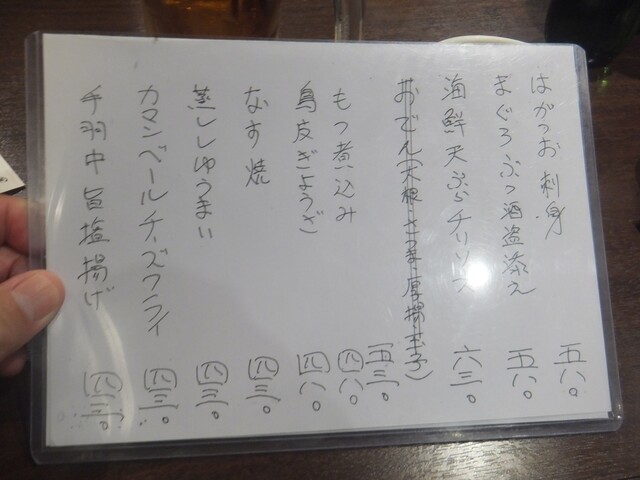 はがつお刺身 五八〇
まぐろぶつ酒盗添え 五八〇
海鮮天ぷらチリソース 六三〇
おでん(大根・さつま・厚揚・玉子) 五三〇
もつ煮込み 四八〇
鳥皮ぎょうざ 四八〇
なす焼 四三〇
蒸ししゅうまい 四三〇
カマンベールチーズフライ 四三〇
手羽中旨塩揚げ 四三〇